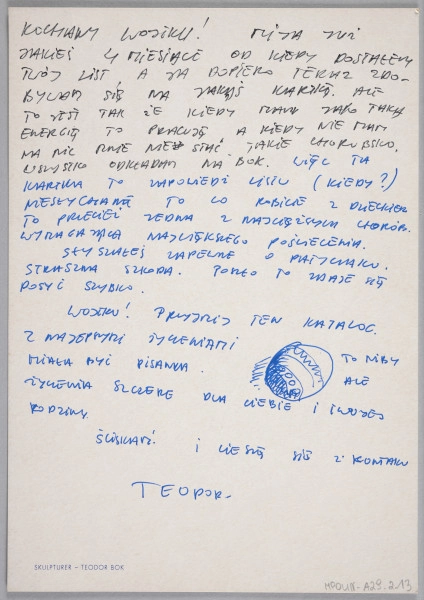 KOCHANY WOJTKU! MIJA JUŻ
JAKIEŚ 4 MIESIĄCE OD KIEDY DOSTAŁEM
TWÓJ LIST A JA DOPIERO TERAZ ZDO-
BYŁAM SIĘ NA JAKĄŚ KARTKĘ. ALE
TO JEST TAK ŻE KIEDY MAM JAKO TAKĄ
ENERGIĘ TO PRACUJĘ A KIEDY NIE MAM
NA NIC MNIE NIE STAĆ. TAKIE CHORÓBSKO.
WSZYSTKO ODKŁADAM NA BOK. WIĘC TA
KARTKA TO ZAPOWIEDŹ LISTU (KIEDY?)
NIESŁYCHANE TO CO ROBICIE Z DZIECKIEM
TO PRZECIEŻ JEDNA Z NAJCIĘŻSZYCH CHORÓB.
WYMAGAJĄCA NAJWIĘKSZEGO POŚWIĘCENIA.
SŁYSZAŁEŚ ZAPEWNE O
STRASZNA SZKODA. TO ZDAJE SIĘ
DOSYĆ SZYBKO.
WOJTKU! PRZYJMIJ TEN KATALOG.
Z NAJLEPSZYMI ŻYCZENIAMI
TO NIBY
MIAŁA BYĆ PISANKA. ALE
ŻYCZENIA SZCZERE DLA CIEBIE I TWOJEJ
RODZINY.
ŚCISKAM! I CIESZĘ SIĘ Z KONTAKTU
TEODOR.
SKULPTURER – TEODOR BOK